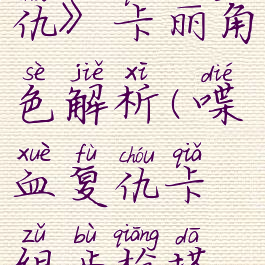 仇》卡丽角
sè jiě xī dié
色解析(喋
xuè fù chóu qiǎ
血复仇卡
zǔ bù qiāng dā
组步枪搭